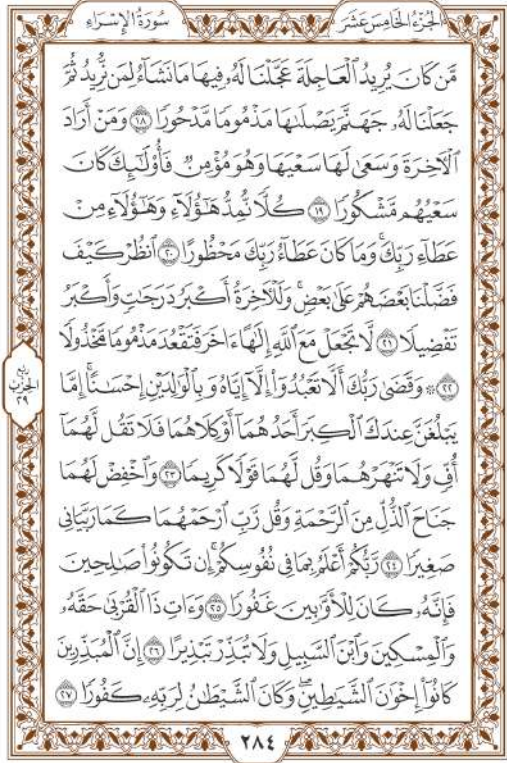 الجزء الخامس عشر
سورة الإسراء
مَّن كَانَ يُرِيدُ ٱلْعَاجِلَةَ عَجَّلْنَا لَهُۥ فِيهَا مَا نَشَآءُ لِمَن نُّرِيدُ ثُمَّ
جَعَلْنَا لَهُۥ جَهَنَّمَ يَصْلَىٰهَا مَذْمُومًا مَّدْحُورًا ١٨ وَمَنْ أَرَادَ
ٱلْءَاخِرَةَ وَسَعَىٰ لَهَا سَعْيَهَا وَهُوَ مُؤْمِنٌ فَأُو۟لَٰٓئِكَ كَانَ
سَعْيُهُم مَّشْكُورًا ١٩ كُلًّا نُّمِدُّ هَٰٓؤُلَآءِ وَهَٰٓؤُلَآءِ مِنْ
عَطَآءِ رَبِّكَ ۚ وَمَا كَانَ عَطَآءُ رَبِّكَ مَحْظُورًا ٢٠ ٱنظُرْ كَيْفَ
فَضَّلْنَا بَعْضَهُمْ عَلَىٰ بَعْضٍ ۚ وَلَلْءَاخِرَةُ أَكْبَرُ دَرَجَٰتٍ وَأَكْبَرُ
تَفْضِيلًا ٢١ لَّا تَجْعَلْ مَعَ ٱللَّهِ إِلَٰهًا ءَاخَرَ فَتَقْعُدَ مَذْمُومًا مَّخْذُولًا
٢٢ ۞ وَقَضَىٰ رَبُّكَ أَلَّا تَعْبُدُوٓا۟ إِلَّآ إِيَّاهُ وَبِٱلْوَٰلِدَيْنِ إِحْسَٰنًا ۚ إِمَّا
يَبْلُغَنَّ عِندَكَ ٱلْكِبَرَ أَحَدُهُمَآ أَوْ كِلَاهُمَا فَلَا تَقُل لَّهُمَآ
أُفٍّ وَلَا تَنْهَرْهُمَا وَقُل لَّهُمَا قَوْلًا كَرِيمًا ٢٣ وَٱخْفِضْ لَهُمَا
جَنَاحَ ٱلذُّلِّ مِنَ ٱلرَّحْمَةِ وَقُل رَّبِّ ٱرْحَمْهُمَا كَمَا رَبَّيَانِى
صَغِيرًا ٢٤ رَّبُّكُمْ أَعْلَمُ بِمَا فِى نُفُوسِكُمْ ۚ إِن تَكُونُوا۟ صَٰلِحِينَ
فَإِنَّهُۥ كَانَ لِلْأَوَّٰبِينَ غَفُورًا ٢٥ وَءَاتِ ذَا ٱلْقُرْبَىٰ حَقَّهُۥ
وَٱلْمِسْكِينَ وَٱبْنَ ٱلسَّبِيلِ وَلَا تُبَذِّرْ تَبْذِيرًا ٢٦ إِنَّ ٱلْمُبَذِّرِينَ
كَانُوٓا۟ إِخْوَٰنَ ٱلشَّيَٰطِينِ ۖ وَكَانَ ٱلشَّيْطَٰنُ لِرَبِّهِۦ كَفُورًا ٢٧
ربع
الحزب
٢٩
٢٨٤